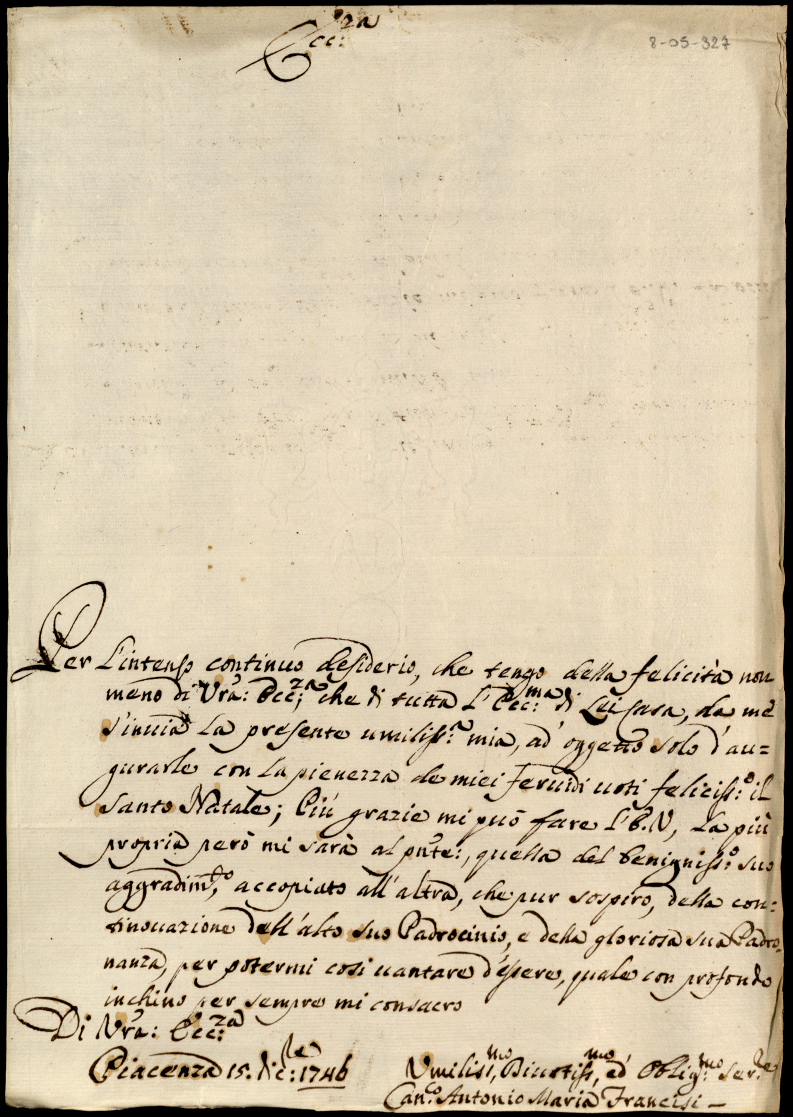 Ecc:za
8-05-327
Per l'intenso continuo desiderio, che tengo della felicità non
meno di Vra: Ecc:za che di tutta l'Ecc:ma di Lei Casa, da mè
s'inuia la presente umiliss:a mia, ad'oggetto solo d'au=
gurarle con la pienezza de miei feruidi uoti feliciss:o il
Santo Natale; Più grazie mi può fare l'E.V, la più
propria però mi sarà al pnte:, quella del benigniss:o suo
aggradim:to accopiato all'altra, che pur sospiro, della con:
tinouazione dell'alto suo Padrocinio, e della gloriosa sua Padro,
nanza, per potermi così uantare d'essere, quale con profondo
inchino per sempre mi consacro
Di Vra: Ecc:za
Piacenza 15. Dic:re 1746
Umilis:mo, Diuotiss:mo, ed' Oblig:mo Ser:re
Can:co Antonio Maria Francisi –